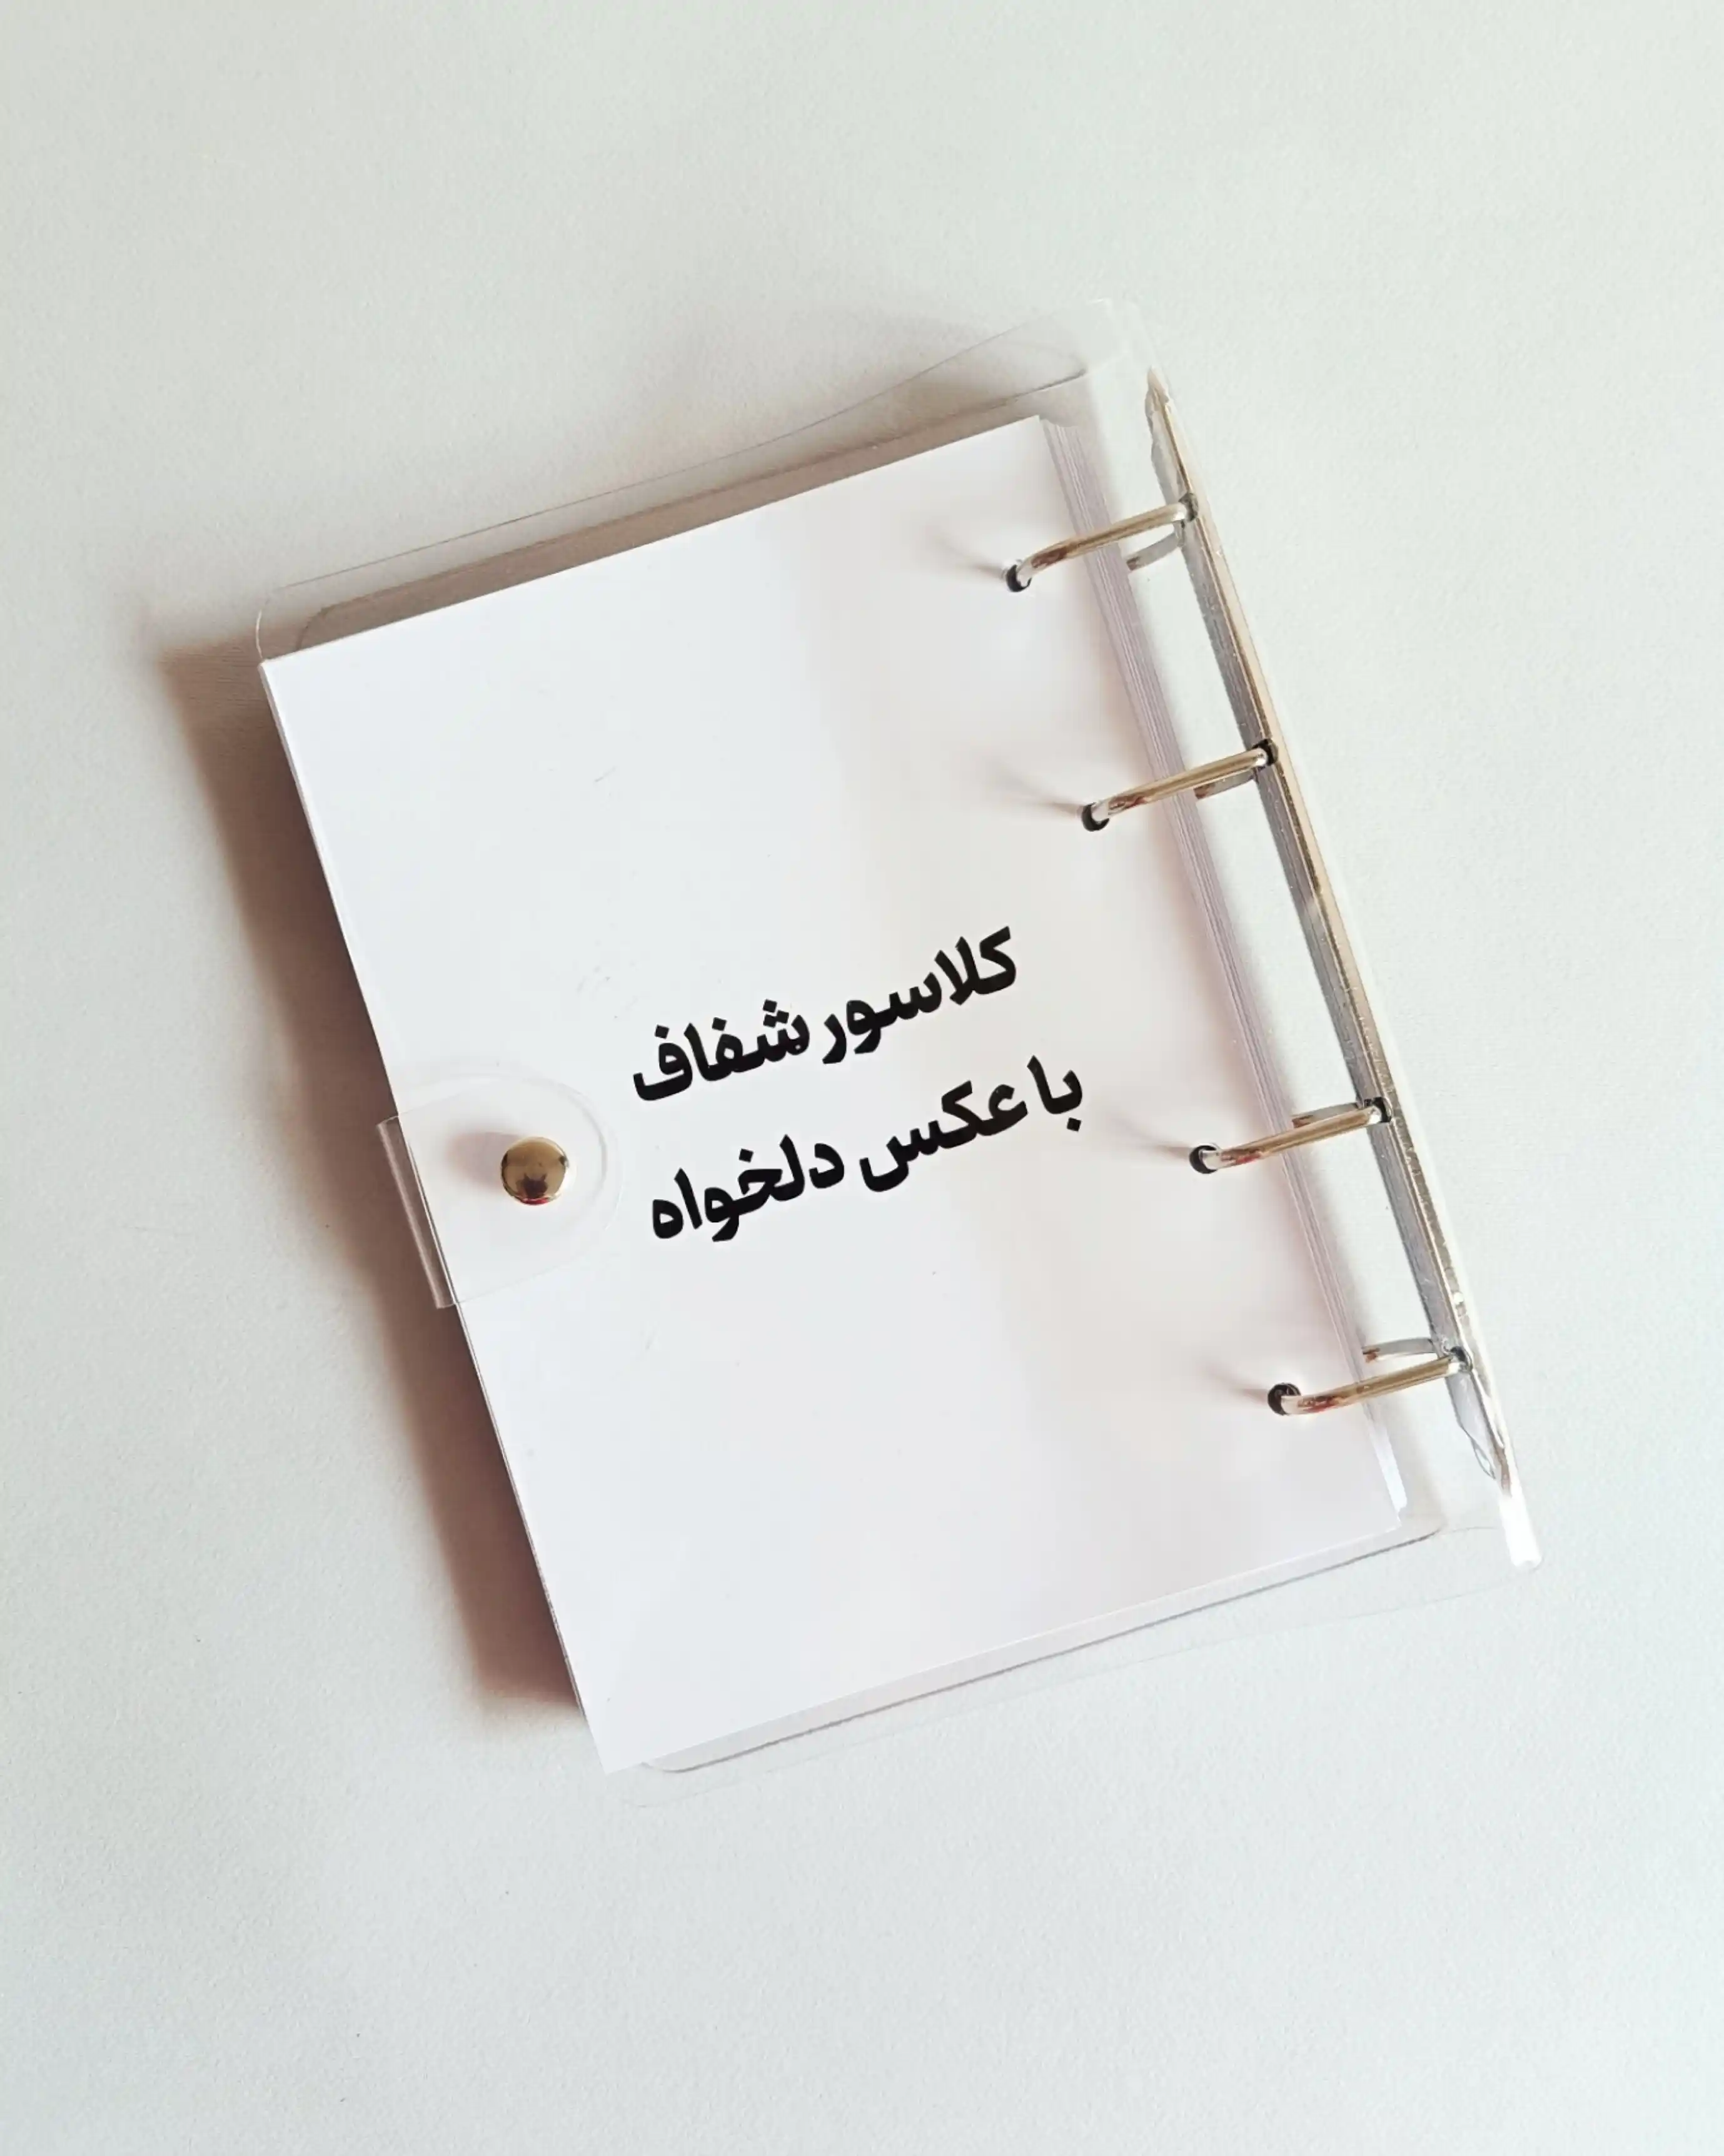 کلاسور شفاف
با عکس دلخواه